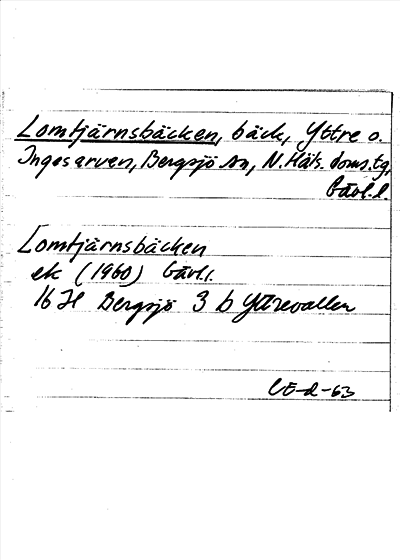 Lomtjärnsbäcken, bäck, Yttre o.
Ingesarven, Bergsjö sn, N. Häls. doms.tg,
Gävl.l.
Lomtjärnsbäcken
ek (1960) Gävl.l.
16 H Bergsjö 3 b Yttrevallen
CE-d-63